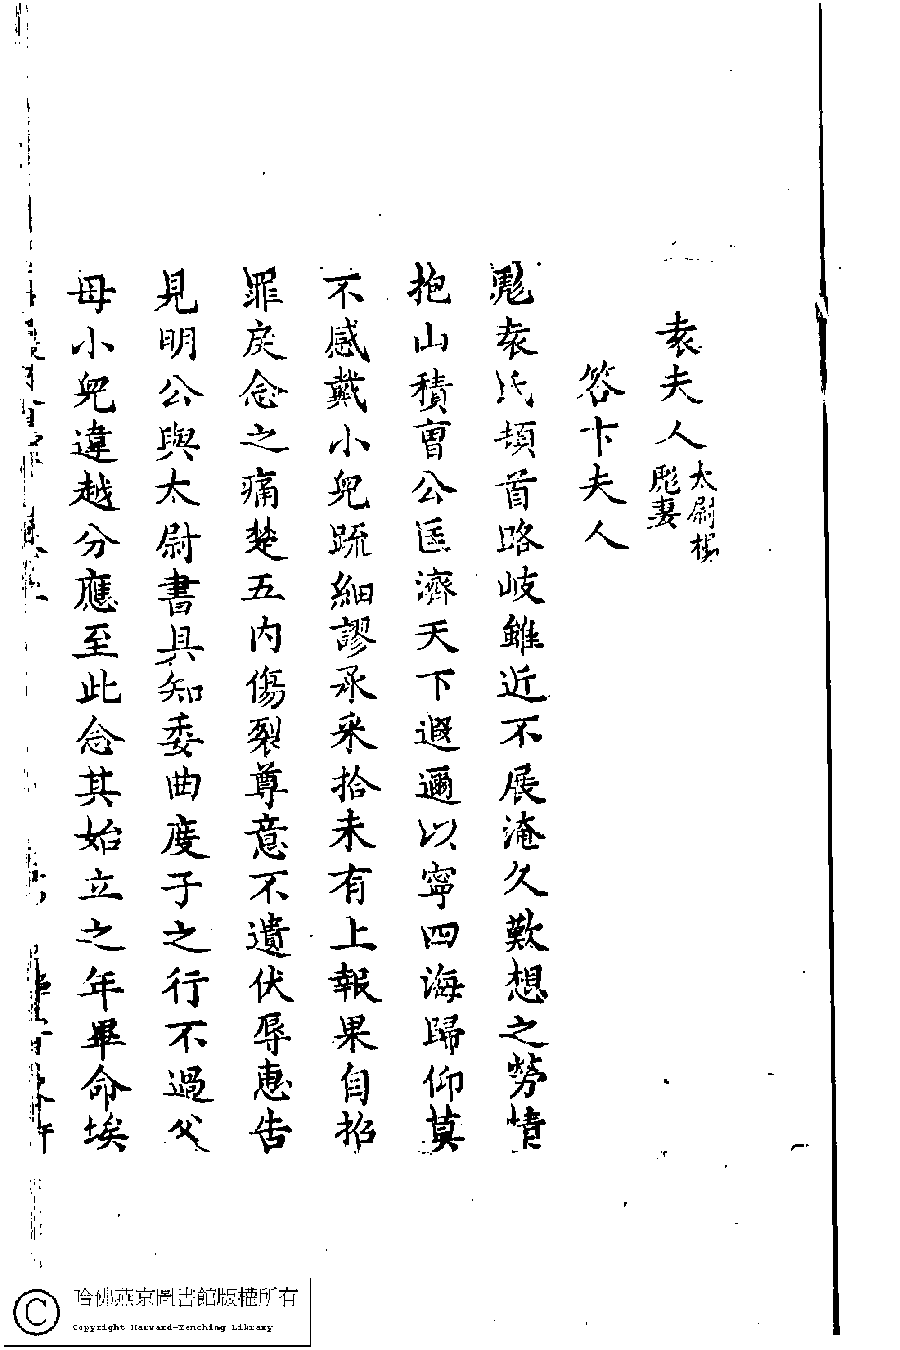 袁夫人太尉楊彪妻
答卞夫人
彪袁氏頓首路岐雖近不展淹久歎想之勞情
抱山積曹公匡濟天下遐邇以寧四海歸仰莫
不感戴小兒疏細謬承采拾未有上報果自招
罪戾念之痛楚五内傷裂尊意不遺伏辱惠告
見明公與太尉書具知委曲度子之行不過父
母小兒違越分應至此念其始立之年畢命埃
哈佛燕京圖書館版權所有
Copyright Harvard-Yenching Library